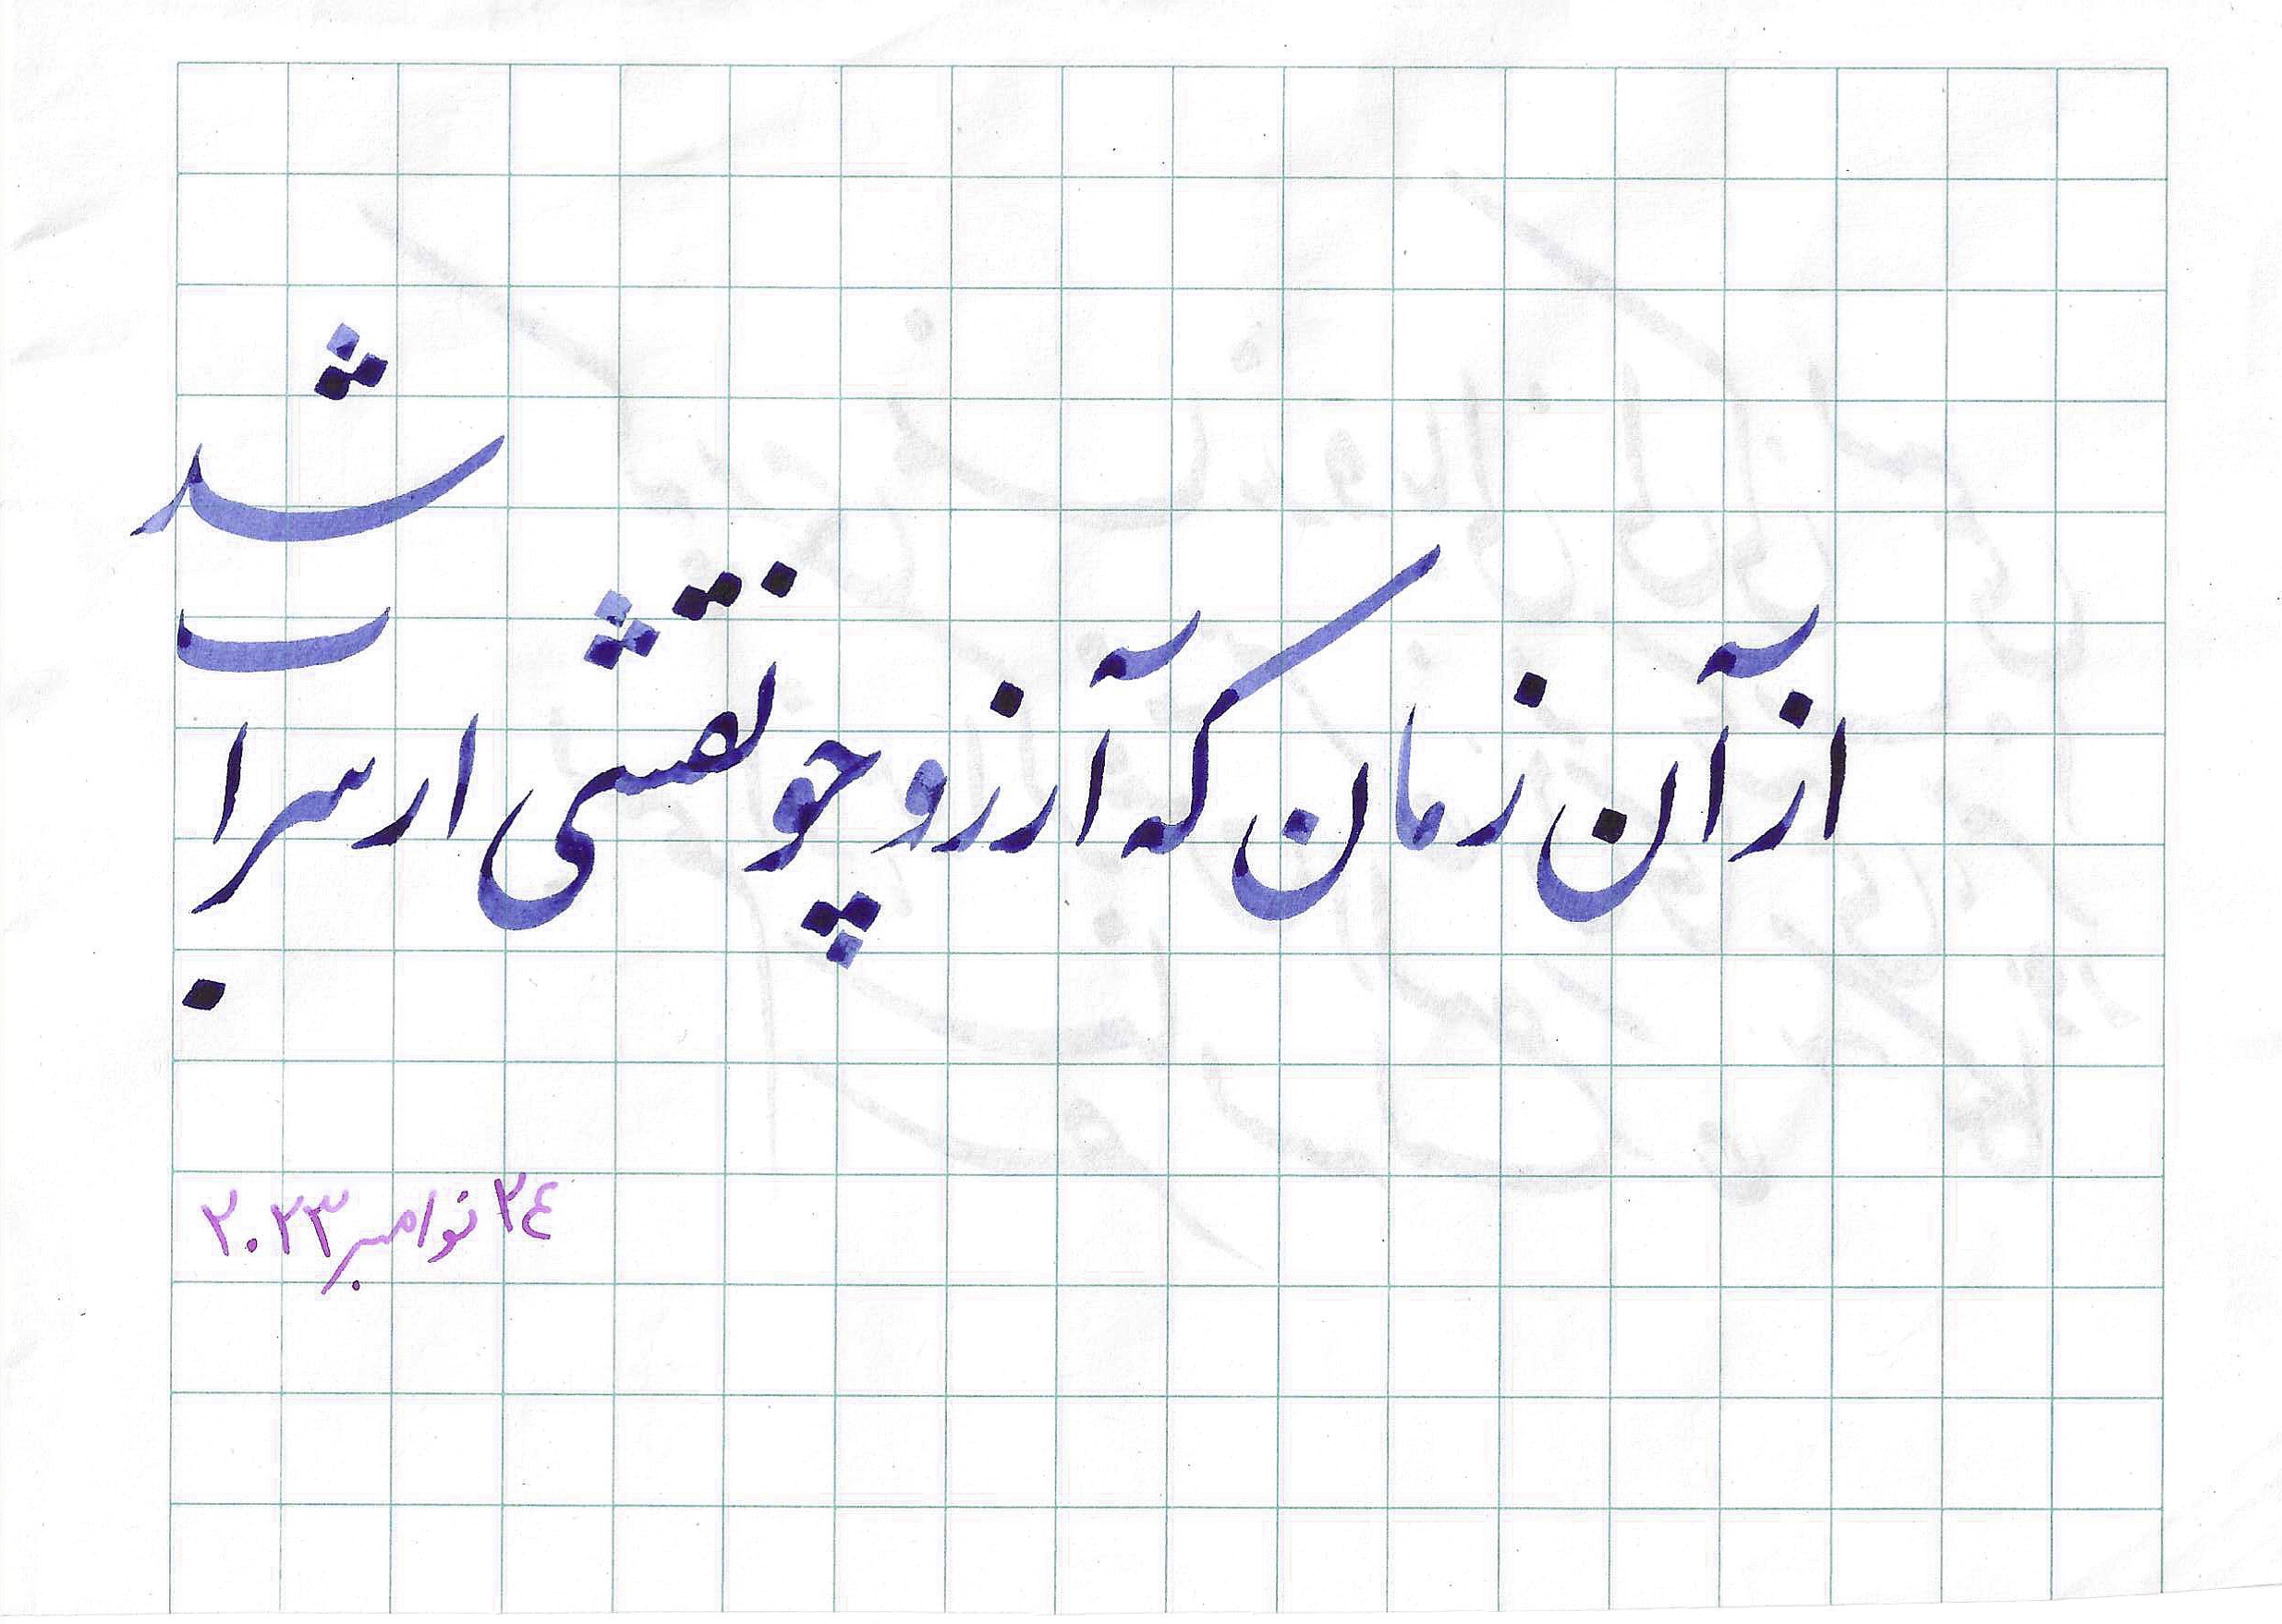 از آن زمان که آرزو چو نقشی ار سراب شد
۲٤ نوامبر ۲۰۲۳